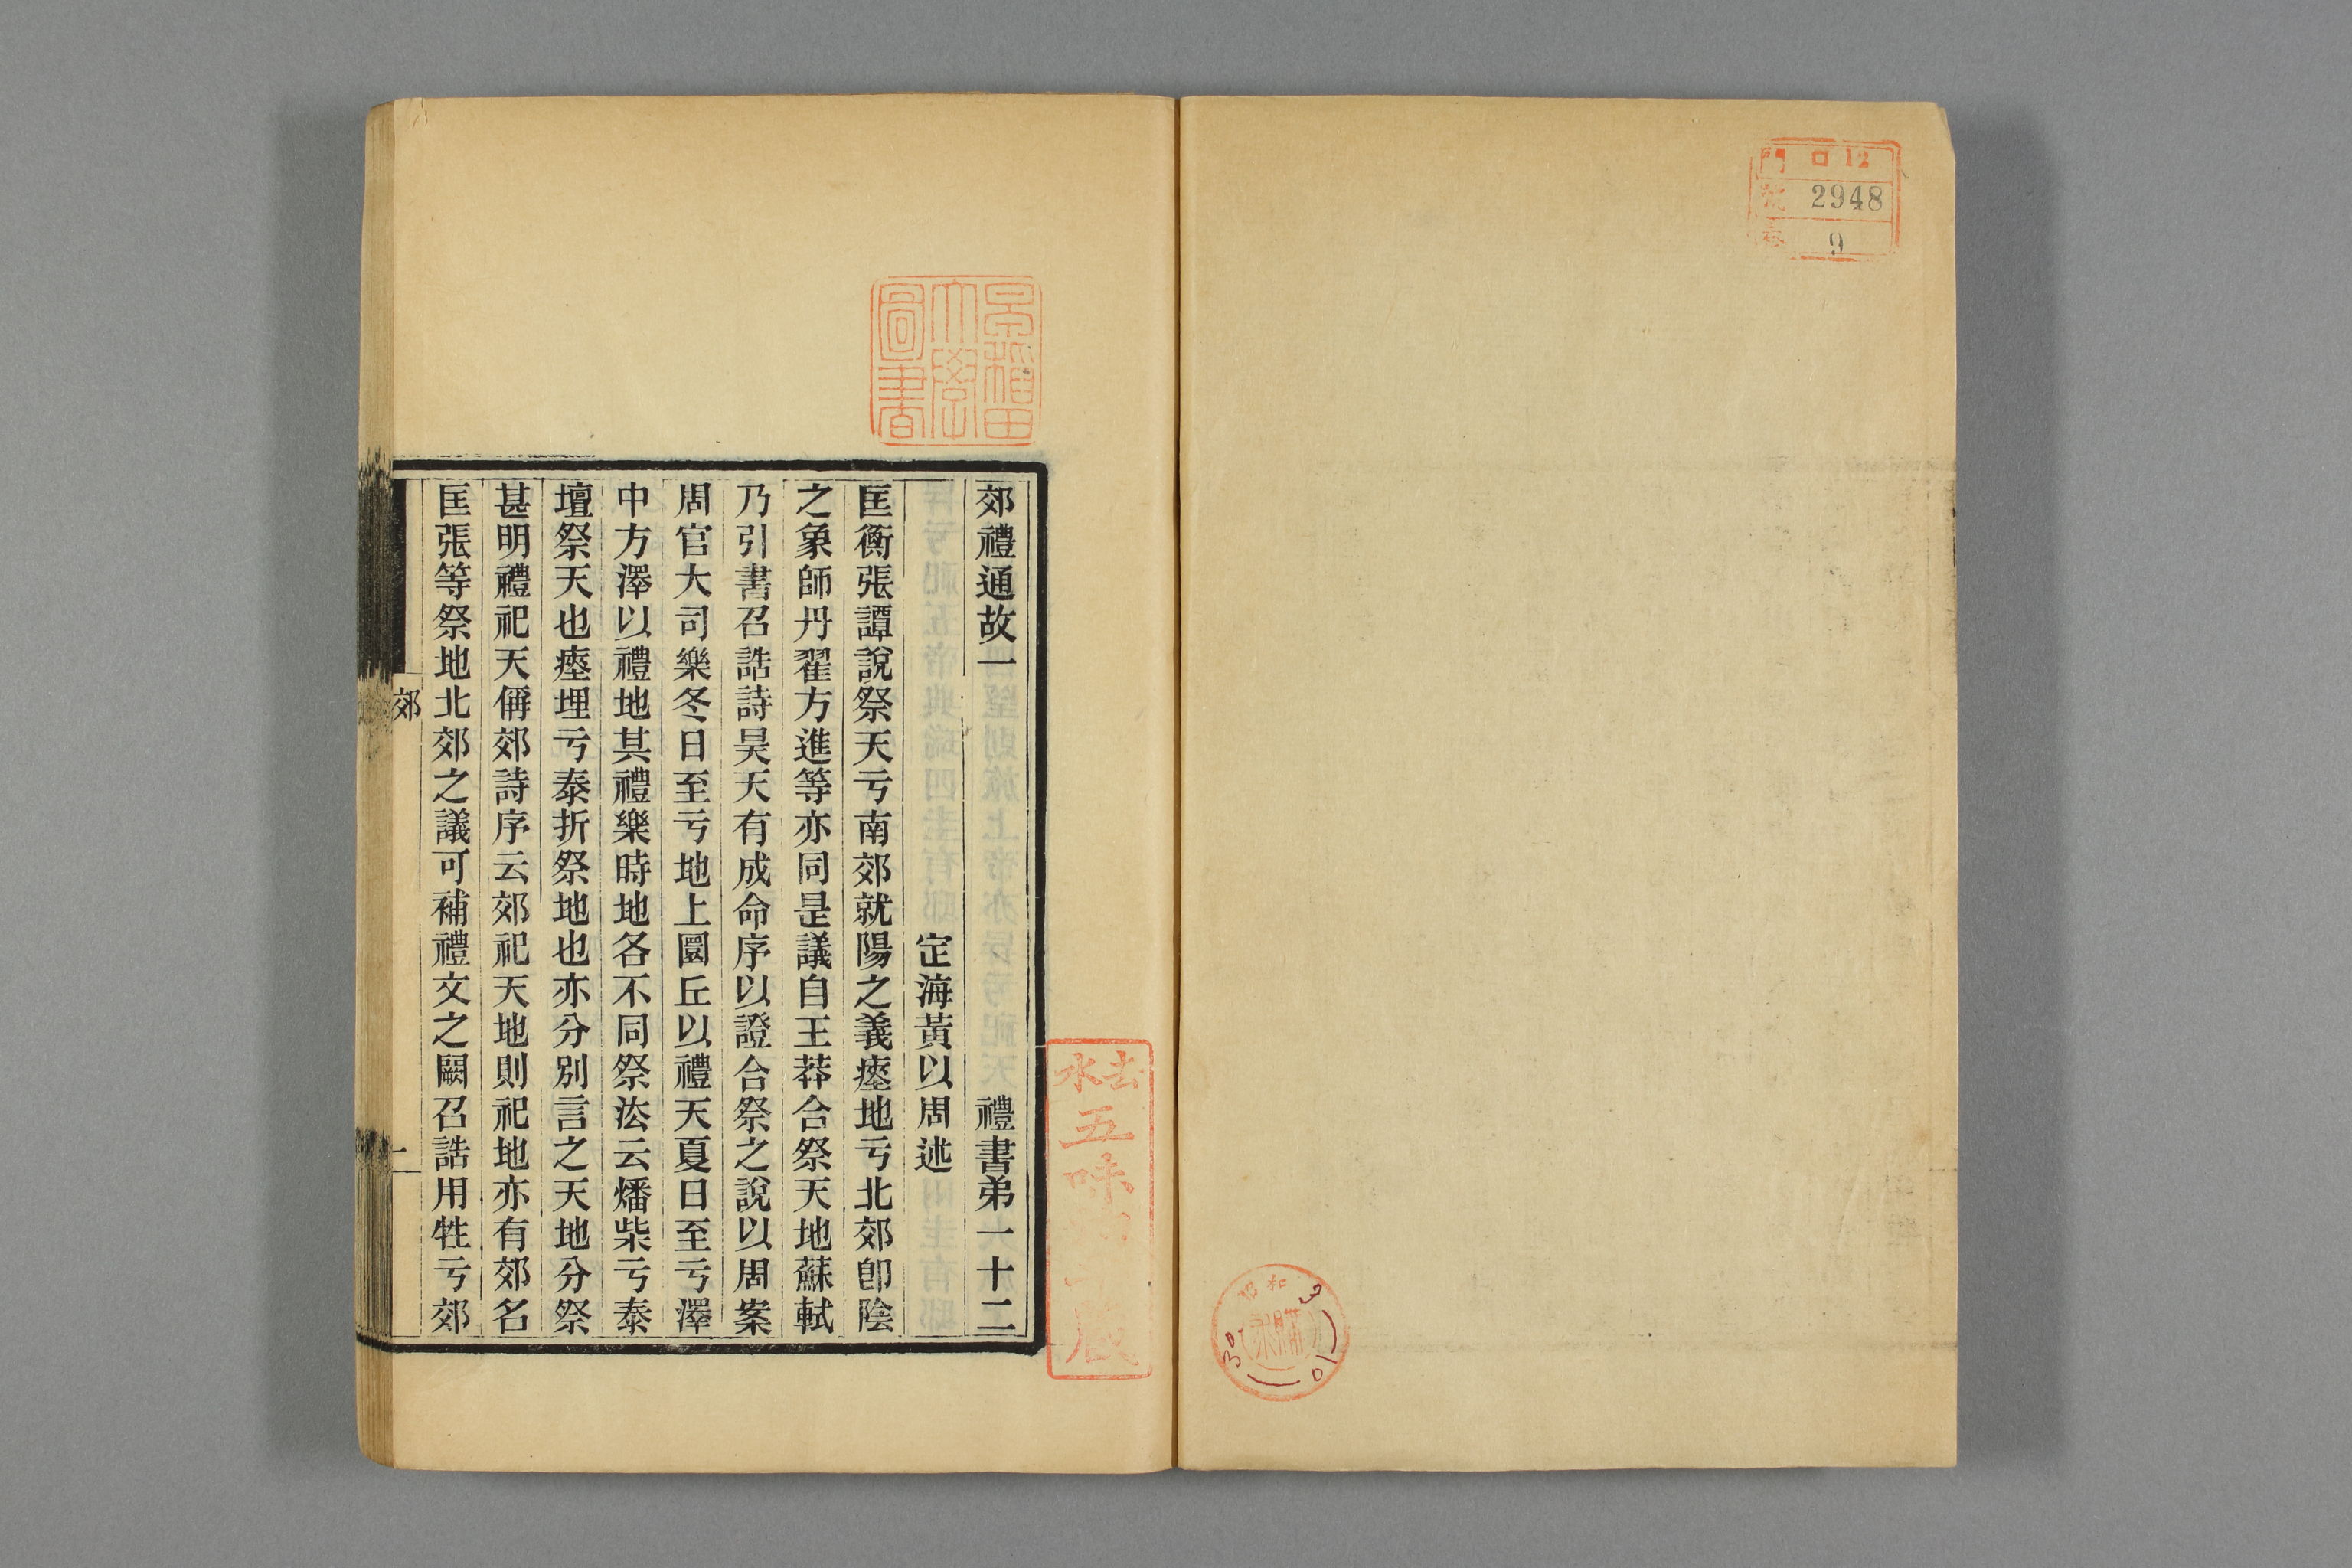 門 ロ 12
號 2948
卷 9
早稻田大學圖書
郊禮通故一 禮書弟一十二
定海黃以周述
匡衡張譚說祭天亏南郊就陽之義瘞地亏北郊卽陰
之象師丹翟方進等亦同是議自王莽合祭天地蘇軾
乃引書召誥詩昊天有成命序以證合祭之說以周案
周官大司樂冬日至亏地上圜丘以禮天夏日至亏澤
中方澤以禮地其禮樂時地各不同祭法云燔柴亏泰
壇祭天也瘞埋亏泰折祭地也亦分別言之天地分祭
甚明禮祀天偁郊詩序云郊祀天地則祀地亦有郊名
匡張等祭地北郊之議可補禮文之闕召誥用牲亏郊
郊
一
五味
藏
昭和
3
10
30